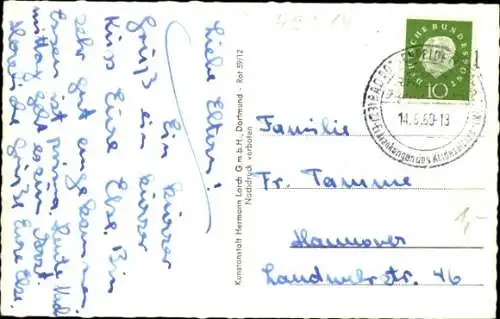 Liebe Eltern!
Ein kurzer
Gruß ein kurzer
Kuss Eure Else. Bin
sehr gut angekommen.
Essen ist prima. Heute Nach
mittag geht es zum Arzt.
Herzliche Grüße Eure Else.
Kunstanstalt Hermann Lorch G.m.b.H., Dortmund - Rot 59/12
Nachdruck verboten
DEUTSCHE BUNDESPOST
10
14.6.60-13
Familie
Fr. Tamme
Hannover
Landwehrstr. 46
1,-